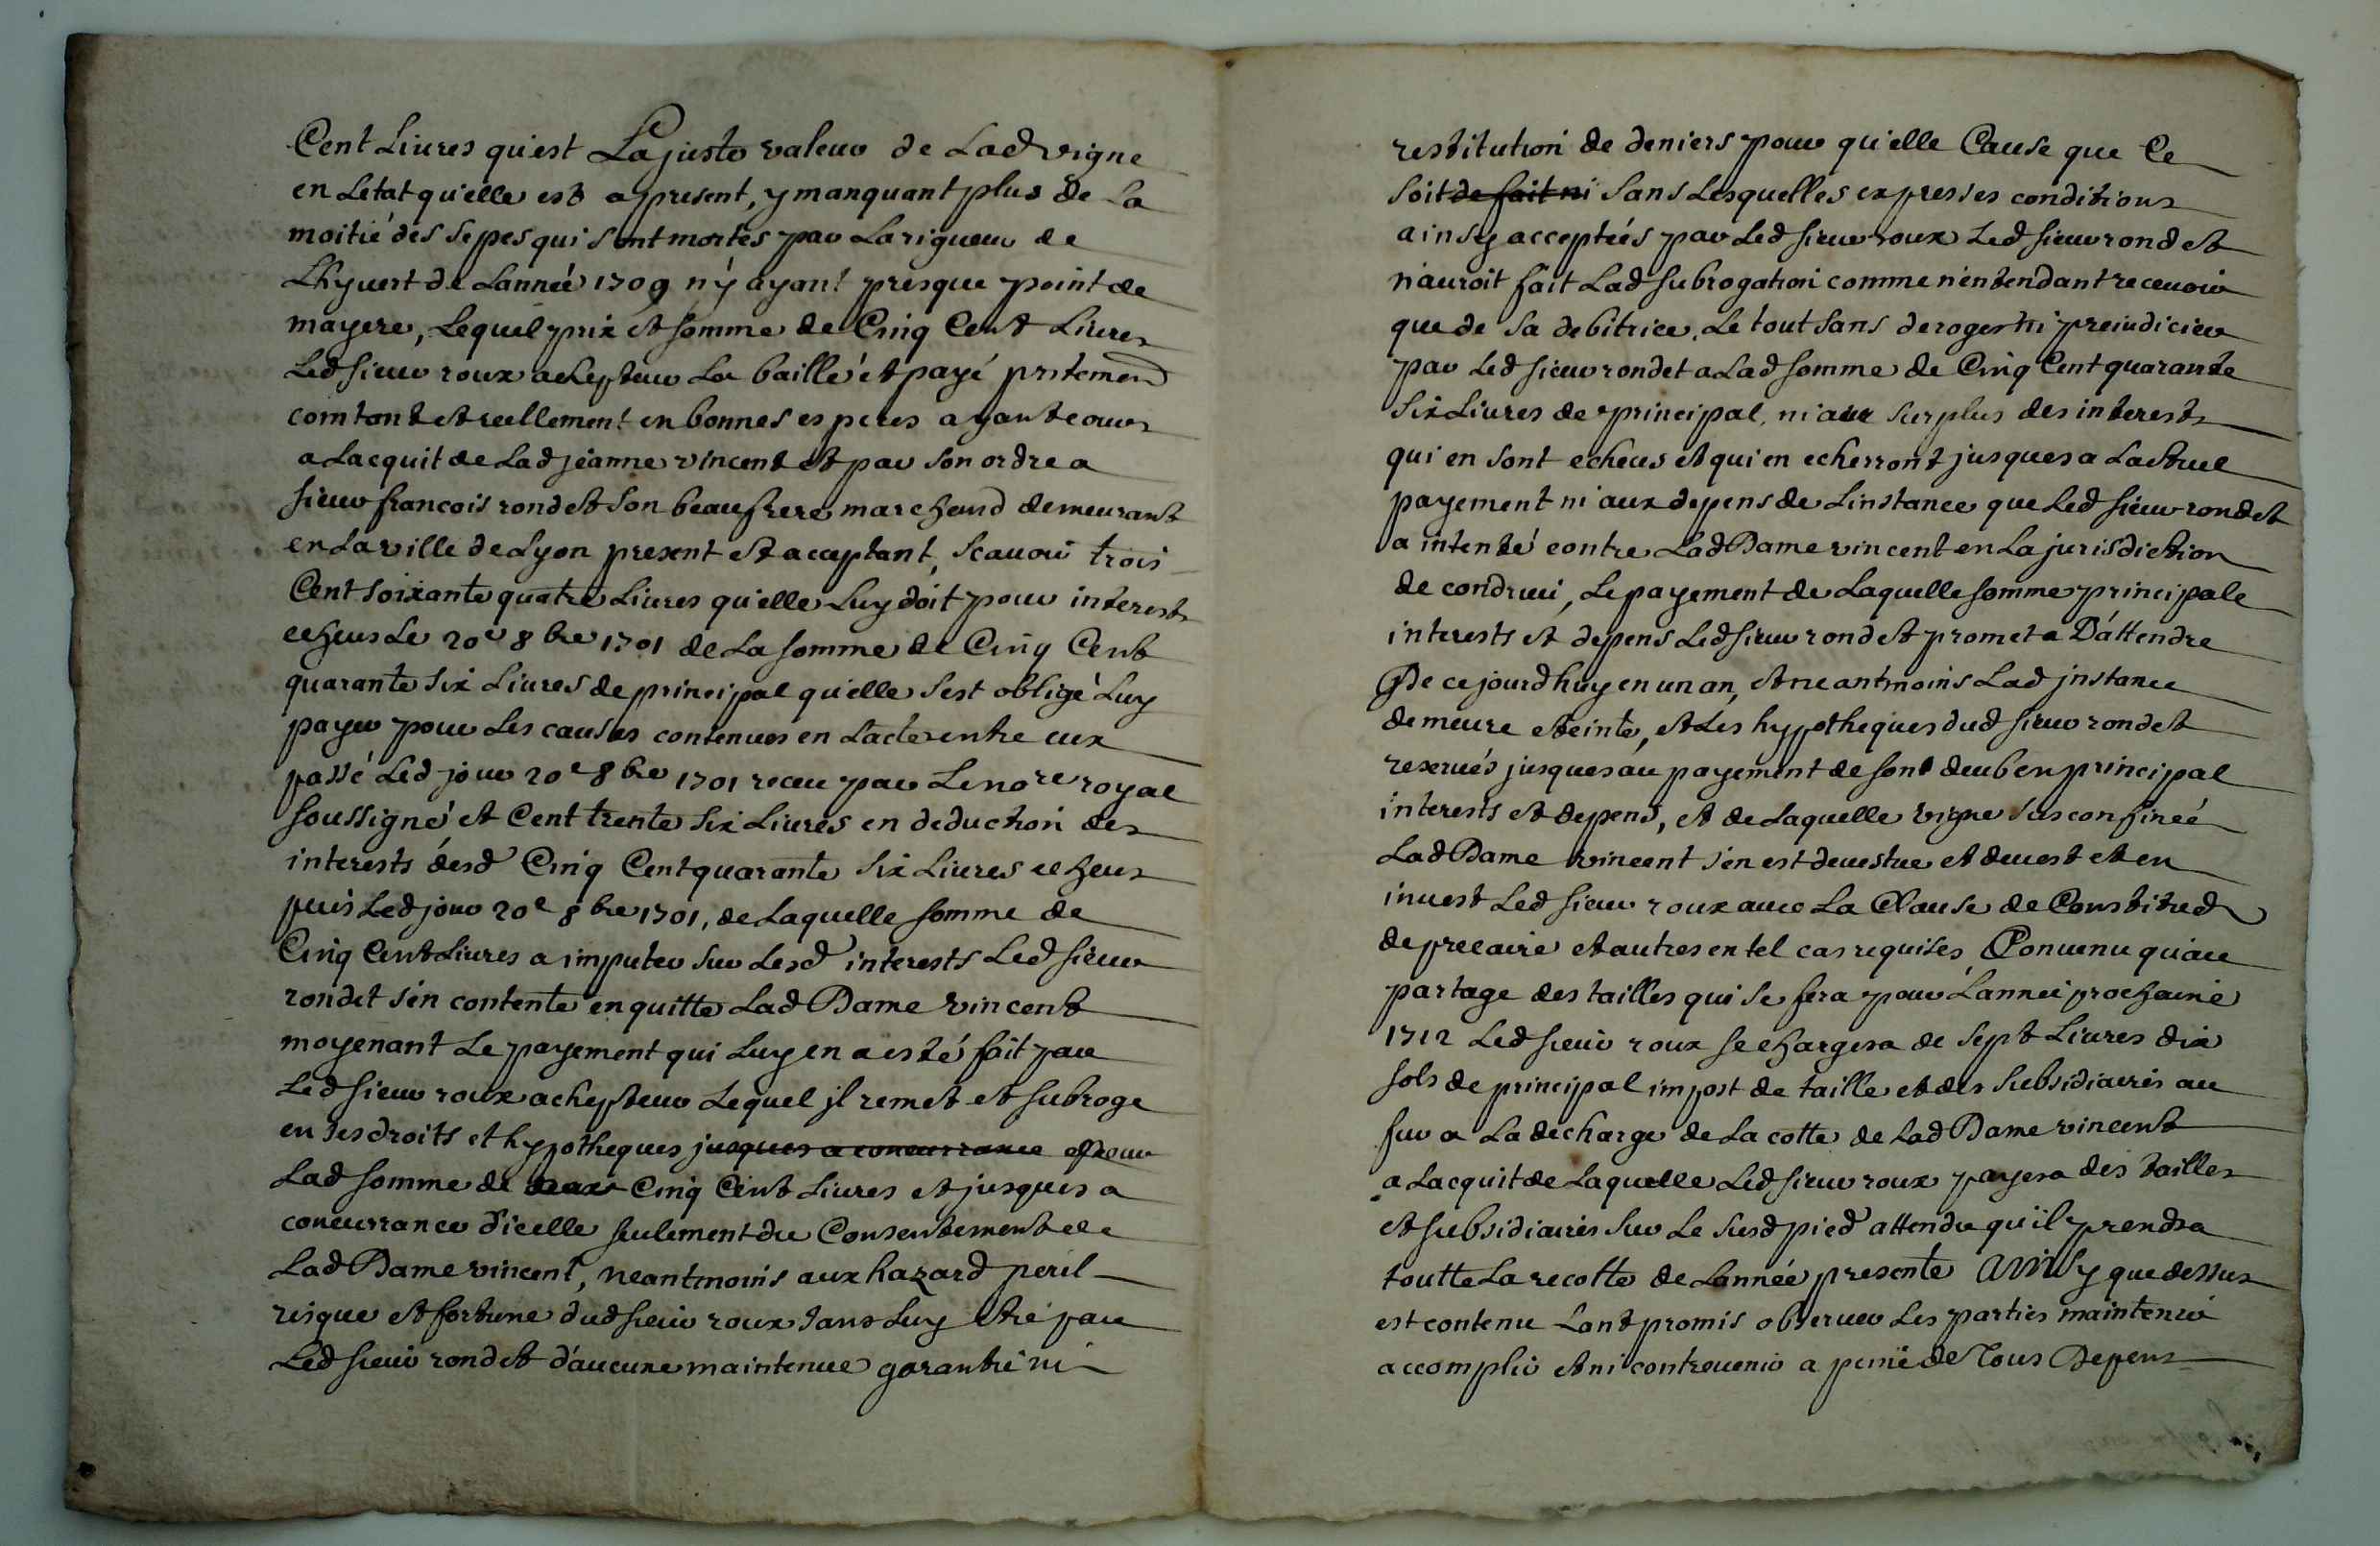 Cent Liures qu'est La juste valeur de Lad vigne
en Letat qu'elle est a present, y manquant plus de La
moitié des sepes qui sont mortes par La rigueur de
Lhyuert de Lannée 1709 n'y ayant presque point de
mayere, Lequel prix et somme de Cinq Cent Liures
Led sieur roux achepteur La baillé et payé pntement
comtant et reellement en bonnes especes ayant cours
a Lacquit de Lad jeanne vincent et par son ordre a
sieur francois rondet son beaufrere marchand demeurant
en La ville de Lyon present et acceptant, scauoir trois
Cent soixante quatre Liures qu'elle Luy doit pour interests
echeus Le 20e 8bre 1701 de La somme de Cinq Cent
quarante six Liures de principal qu'elle s'est obligé Luy
payer pour Les causes contenues en Lacte entre eux
passé Led jour 20e 8bre 1701 receu par Le nore royal
soussigné et Cent trente six Liures en deduction des
interests desd Cinq Cent quarante six Liures echeus
puis Led jour 20e 8bre 1701, de Laquelle somme de
Cinq Cent Liures a imputer sur Lesd interests Led sieur
rondet s'en contente en quitte Lad Dame vincent
moyenant Le payement qui Luy en a esté fait par
Led sieur roux achepteur Lequel jl remet et subroge
en ses droits et hypotheques jusques a concurrance pour
Lad somme de deux Cinq Cent Liures et jusques a
concurrance d'icelle seulement du Consentement de
Lad Dame vincent, neantmoins aux hazard peril
risque et fortune dud sieur roux sans Luy etre par
Led sieur rondet d'aucune maintenue garantie ni
restitution de deniers pour qu'elle Cause que Ce
soit de fait ni sans Lesquelles expresses conditions
ainsy acceptées par Led sieur roux Led sieur rondet
n'auroit fait Lad subrogation comme n'entendant receuoir
que de sa debitrice. Le tout sans deroger ni preiudicier
par Led sieur rondet a Lad somme de Cinq Cent quarante
six Liures de principal, ni au surplus des interests
qui en sont echeus et qui en echerront jusques a Lactuel
payement ni aux depens de Linstance que Led sieur rondet
a intenté contre Lad Dame vincent en La jurisdiction
de condrieu, Le payement de Laquelle somme principale
interests et depens Led sieur rondet promet a D'attendre
De ce jourdhuy en un an, et neantmoins Lad jnstance
demeure eteinte, et Les hypotheques dud sieur rondet
reserués jusques au payement de sont deub en principal
interests et depens, et de Laquelle vigne sus confinée
Lad Dame vincent s'en est deuestue et deuest et en
inuest Led sieur roux auec La Clause de Constitud
de precaire et autres en tel cas requises, Conuenu qu'au
partage des tailles qui se fera pour L'année prochaine
1712 Led sieur roux se chargera de sept Liures dix
sols de principal impost de taille et des subsidiaires au
fur a La decharge de La cotte de Lad Dame vincent
a Lacquit de Laquelle Led sieur roux payera des tailles
et subsidiaires sur Le susd pied attendu qu'il prendra
toutte La recolte de Lannée presente ainsy que dessus
est contenu Lont promis obseruer Les parties maintenir
accomplir et ni contreuenir a peine de Tous Depens